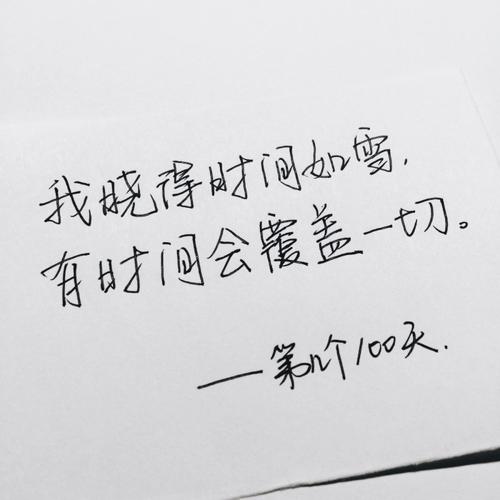 我晓得时间如雪,
有时间会覆盖一切。
—第几个100天.